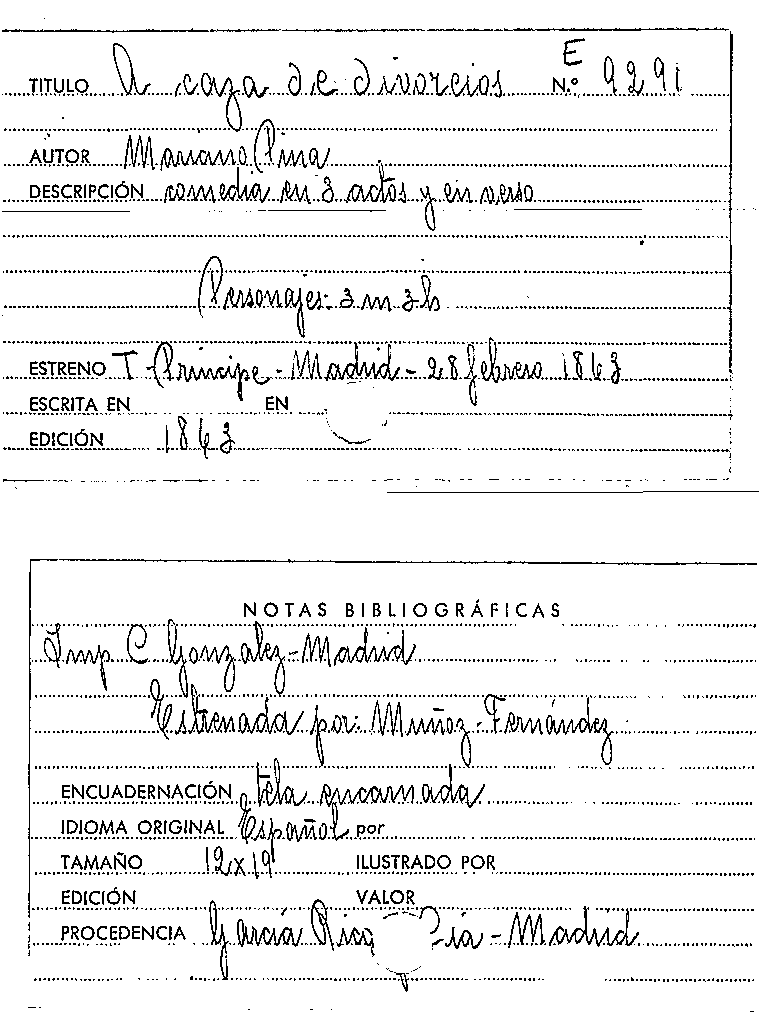 E
TITULO A caza de divorcios N.º 9291
AUTOR Mariano Pina
DESCRIPCIÓN comedia en 3 actos y en verso
Personajes: 3 m 3 h
ESTRENO T. Príncipe - Madrid - 28 febrero 1863
ESCRITA EN EN
EDICIÓN 1863
NOTAS BIBLIOGRÁFICAS
Imp C. Gonzalez - Madrid
Estrenada por: Muñoz - Fernández
ENCUADERNACIÓN tela encarnada
IDIOMA ORIGINAL Español por
TAMAÑO 12x19 ILUSTRADO POR
EDICIÓN VALOR
PROCEDENCIA García Rico - Madrid